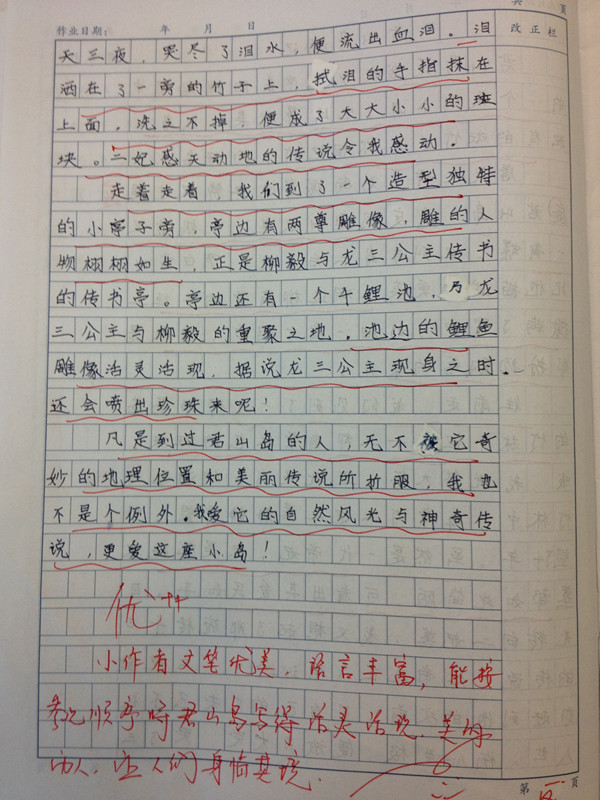 共 页
作业日期： 年 月 日 改正栏
天三夜，哭尽了泪水，便流出血泪。泪
洒在了一旁的竹子上，拭泪的手指抹在
上面，洗之不掉，便成了大大小小的斑
块。二妃感天动地的传说令我感动。
走着走着，我们到了一个造型独特
的小亭子旁，亭边有两尊雕像，雕的人
物栩栩如生，正是柳毅与龙三公主传书
的传书亭。亭边还有一个千鲤池，乃龙
三公主与柳毅的重聚之地。池边的鲤鱼
雕像活灵活现，据说龙三公主现身之时，
还会喷出珍珠来呢！
凡是到过君山岛的人，无不被它奇
妙的地理位置和美丽传说所折服，我也
不是个例外。我爱它的自然风光与神奇传
说，更爱这座小岛！
优++
小作者文笔优美，语言丰富，能按
参观顺序将君山岛写得活灵活现，美的
动人，让人们身临其境。
第 页